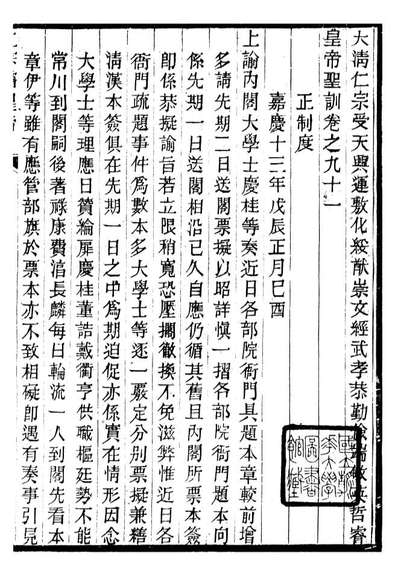 大清仁宗受天興運敷化綏猷崇文經武孝恭勤儉端敏英哲睿
皇帝聖訓卷之九十一
正制度
嘉慶十三年戊辰正月己酉
上諭內閣大學士慶桂等奏近日各部院衙門具題本章較前增
多請先期二日送閣票擬以昭詳慎一摺各部院衙門題本向
係先期一日送閣相沿已久自應仍循其舊且內閣所票本簽
即係恭擬諭旨若立限稍寬恐壓擱徹換不免滋弊惟近日各
衙門疏題事件為數本多大學士等逐一覈定分別票擬兼繕
清漢本簽俱在先期一日之中為期迫促亦係實在情形因念
大學士等理應日贊綸扉慶桂董誥戴衢亨供職樞廷勢不能
常川到閣嗣後著祿康費淳長麟每日輪流一人到閣先看本
章伊等雖有應管部旗於票本亦不致相礙即遇有奏事引見